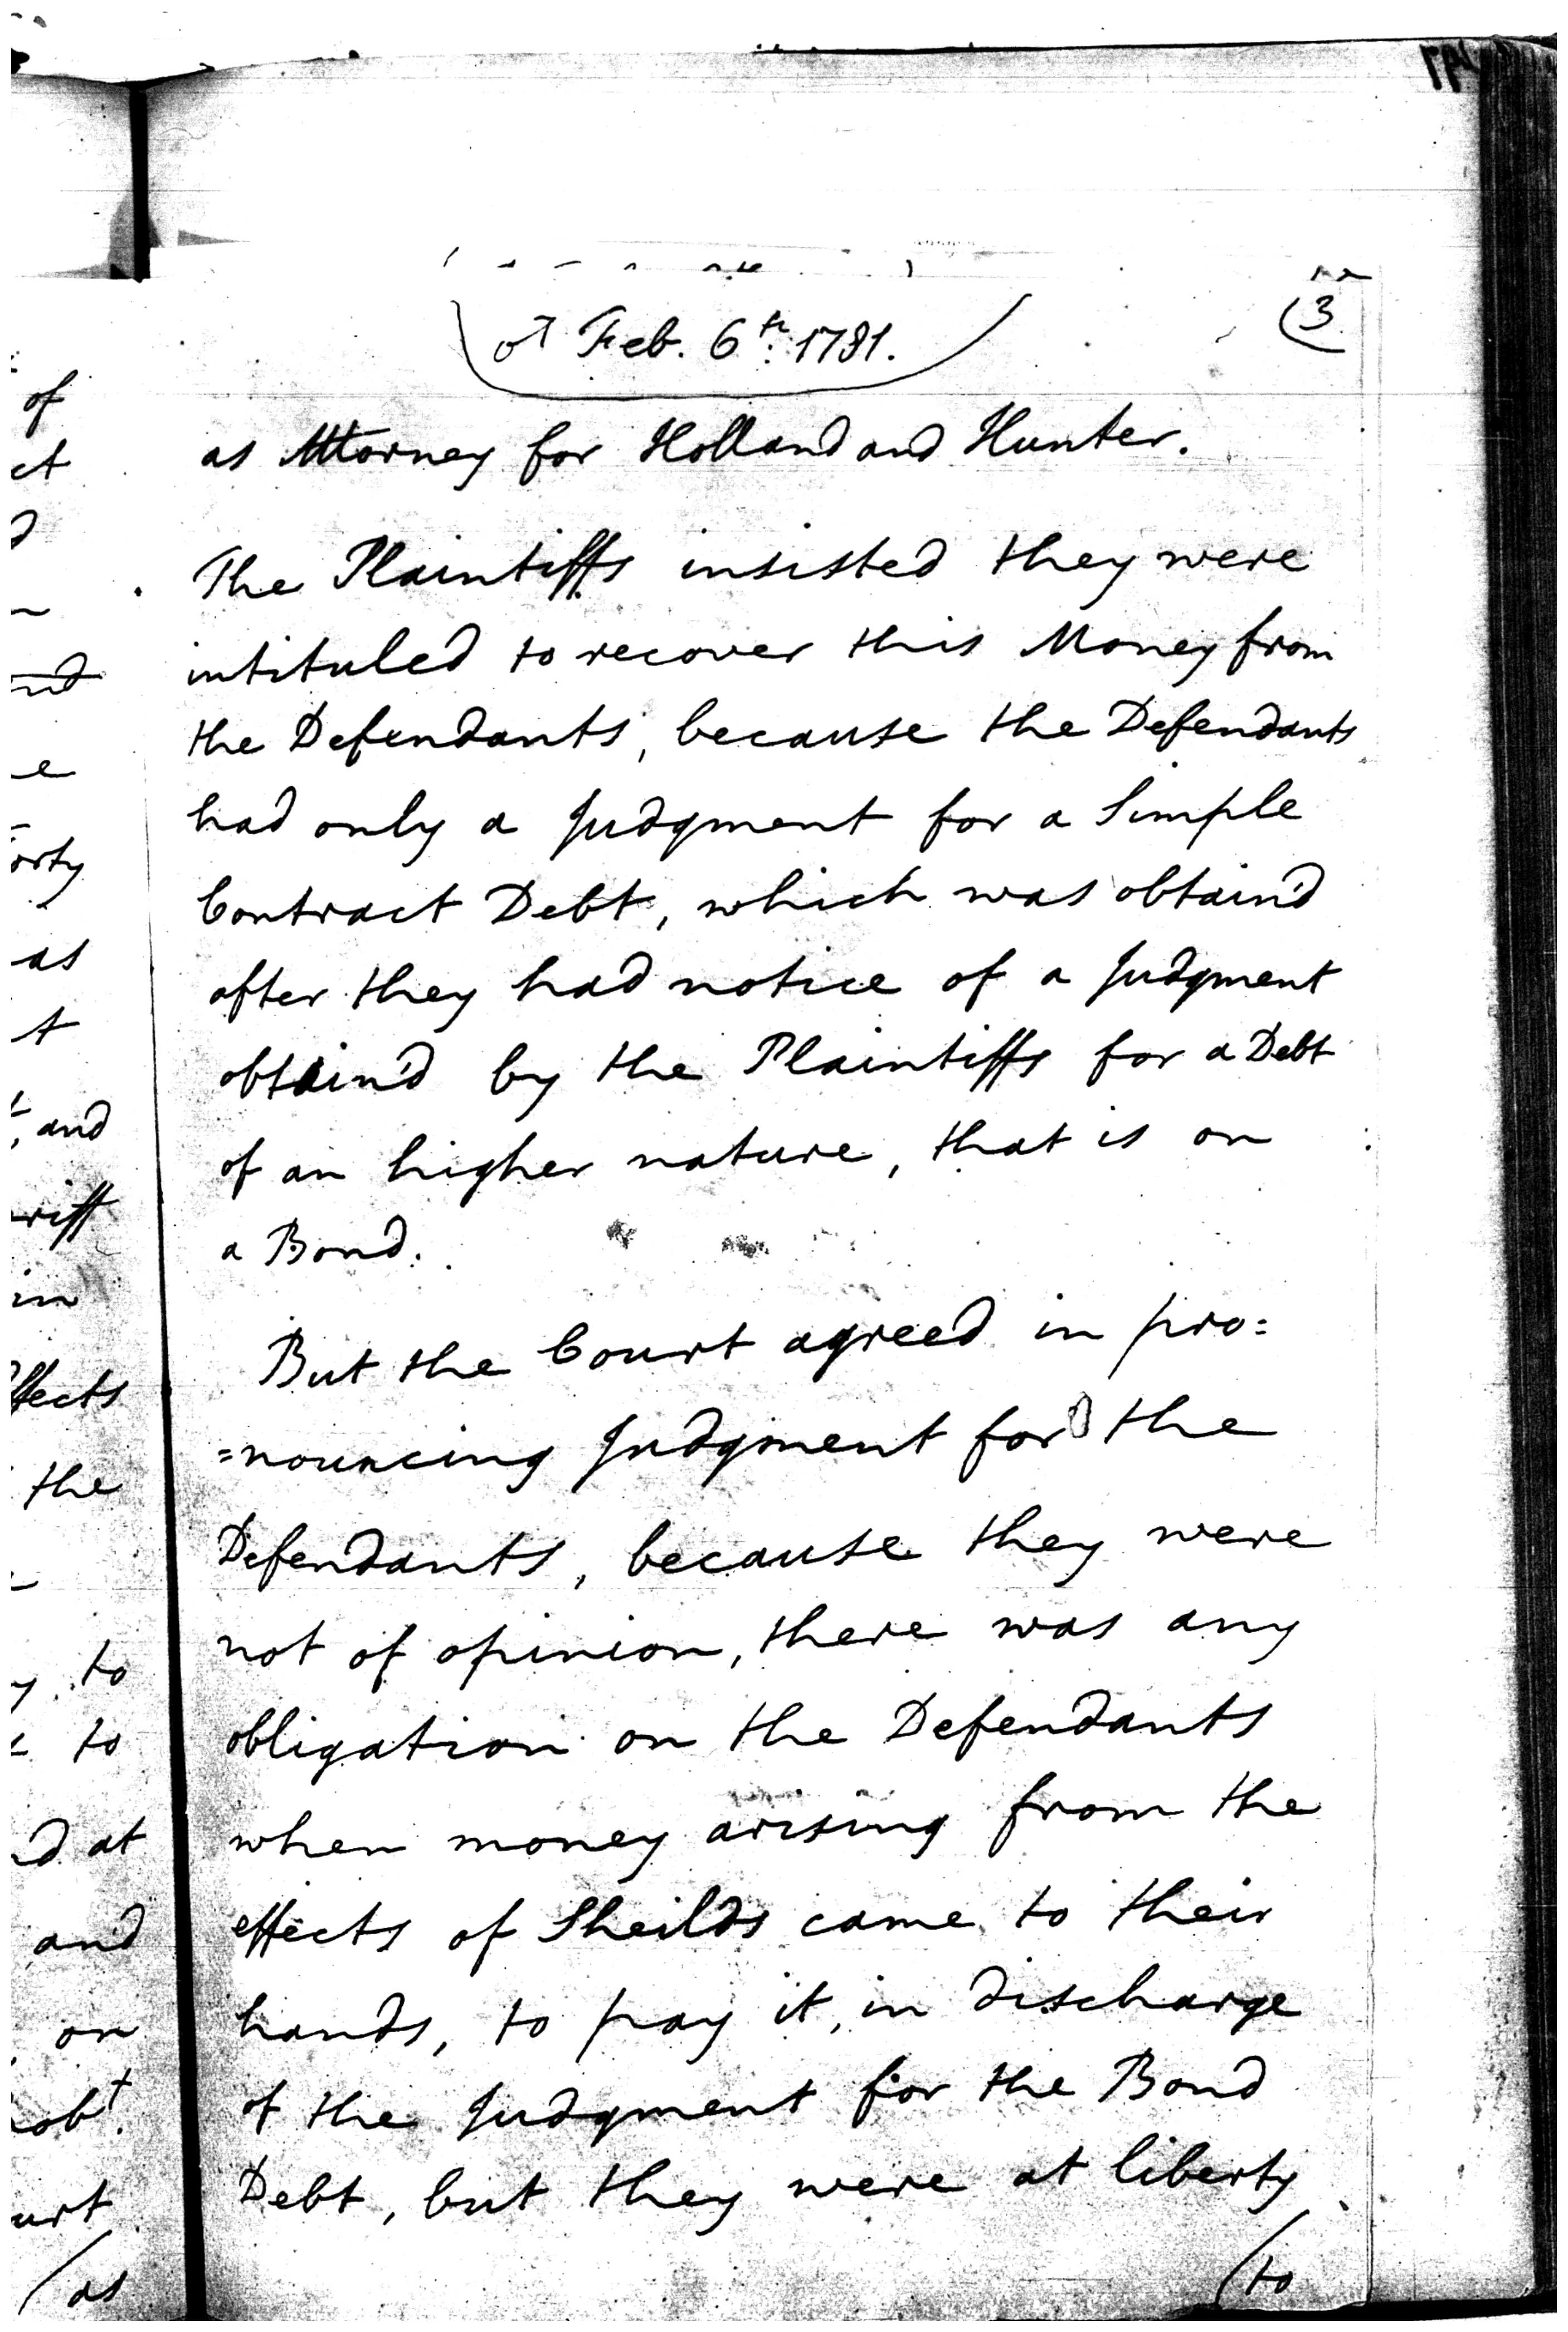 ♂ Feb. 6th. 1781.
(3
as Attorney for Holland and Hunter.
The Plaintiffs insisted they were
intituled to recover this Money from
the Defendants, because the Defendants
had only a Judgment for a Simple
Contract Debt, which was obtain'd
after they had notice of a Judgment
obtain'd by the Plaintiffs for a Debt
of an higher nature, that is on
a Bond.
But the Court agreed in pro:
=nouncing Judgment for the
Defendants, because they were
not of opinion, there was any
obligation on the Defendants
when money arising from the
effects of Sheilds came to their
hands, to pay it, in discharge
of the Judgment for the Bond
Debt, but they were at liberty
/to
of
as
and
the
to
to
at
and
on
/as